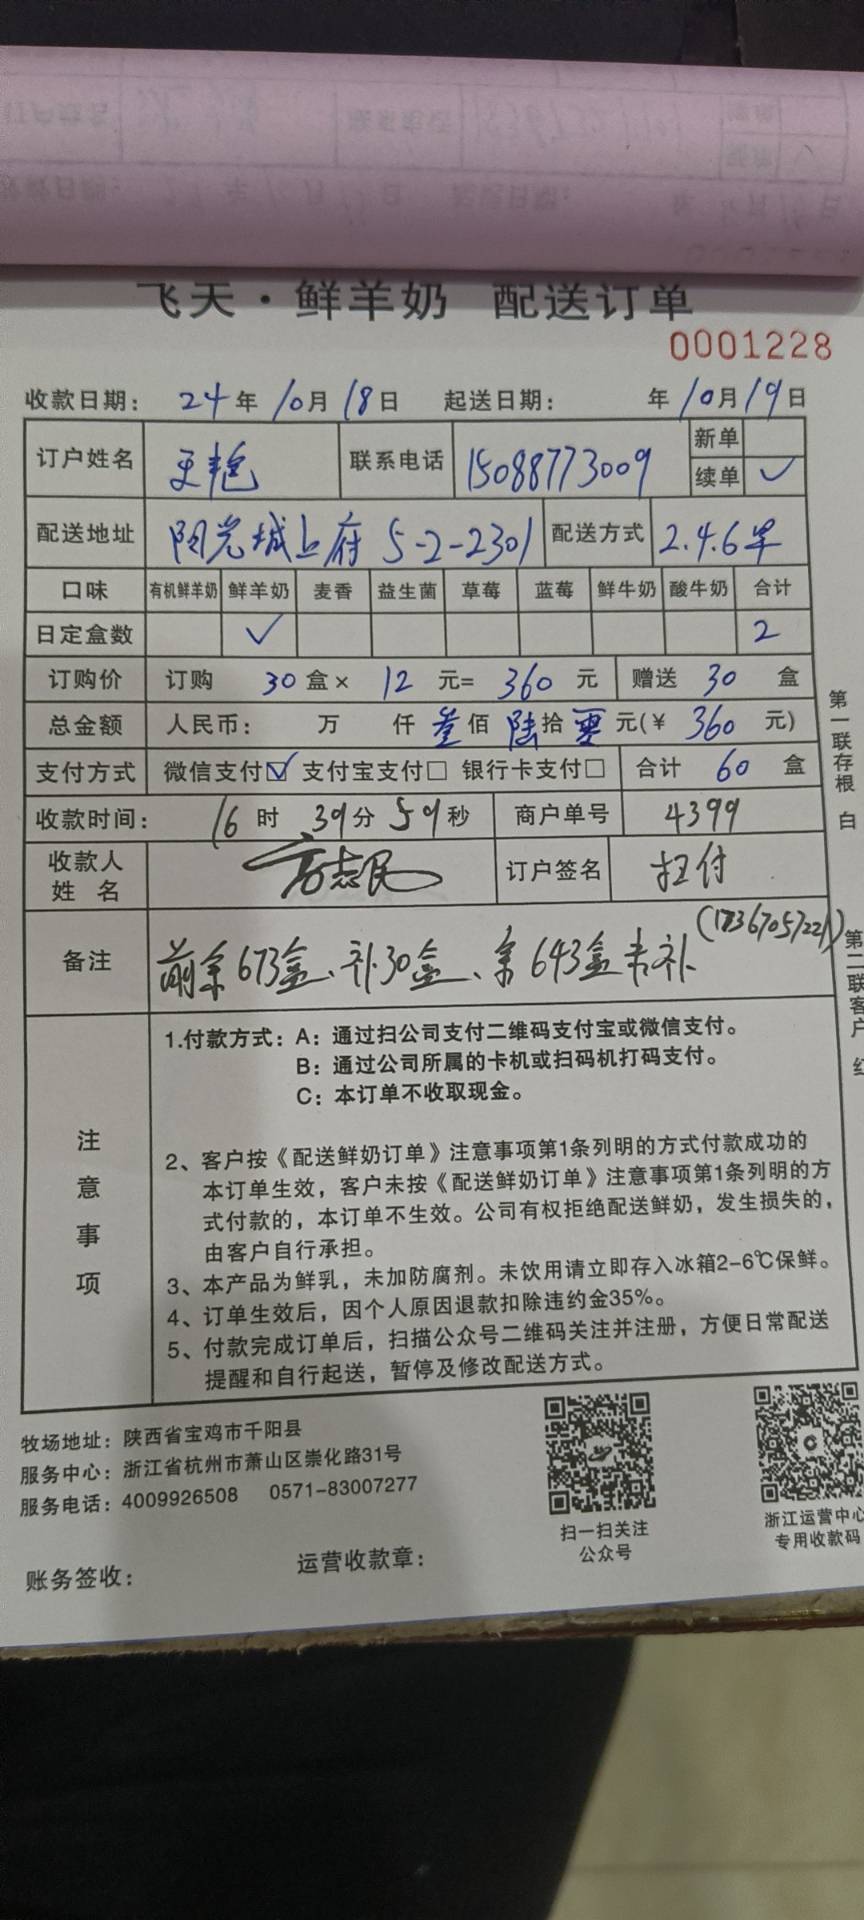 飞天·鲜羊奶 配送订单
0001228
收款日期： 24年10月18日 起送日期： 年10月19日
订户姓名 王艳 联系电话 15088773009 新单
续单 ✓
配送地址 阳光城上府 5-2-2301 配送方式 2.4.6早
口味 有机鲜羊奶 鲜羊奶 麦香 益生菌 草莓 蓝莓 鲜牛奶 酸牛奶 合计
日定盒数 ✓ 2
订购价 订购 30盒× 12元= 360元 赠送 30盒
总金额 人民币： 万 仟 叁佰 陆拾 零元(￥ 360元)
支付方式 微信支付☑ 支付宝支付□ 银行卡支付□ 合计 60盒
收款时间： 16时 39分 59秒 商户单号 4399
收款人姓名 方志民 订户签名 扫付
备注 前余673盒、补30盒、余643盒未补 (17367057221)
注意事项
1.付款方式：A：通过扫公司支付二维码支付宝或微信支付。
B：通过公司所属的卡机或扫码机打码支付。
C：本订单不收取现金。
2、客户按《配送鲜奶订单》注意事项第1条列明的方式付款成功的
本订单生效，客户未按《配送鲜奶订单》注意事项第1条列明的方
式付款的，本订单不生效。公司有权拒绝配送鲜奶，发生损失的，
由客户自行承担。
3、本产品为鲜乳，未加防腐剂。未饮用请立即存入冰箱2-6℃保鲜。
4、订单生效后，因个人原因退款扣除违约金35%。
5、付款完成订单后，扫描公众号二维码关注并注册，方便日常配送
提醒和自行起送，暂停及修改配送方式。
第一联存根 白
第二联客户 红
牧场地址：陕西省宝鸡市千阳县
服务中心：浙江省杭州市萧山区崇化路31号
服务电话：4009926508 0571-83007277
扫一扫关注
公众号
浙江运营中心
专用收款码
账务签收： 运营收款章：